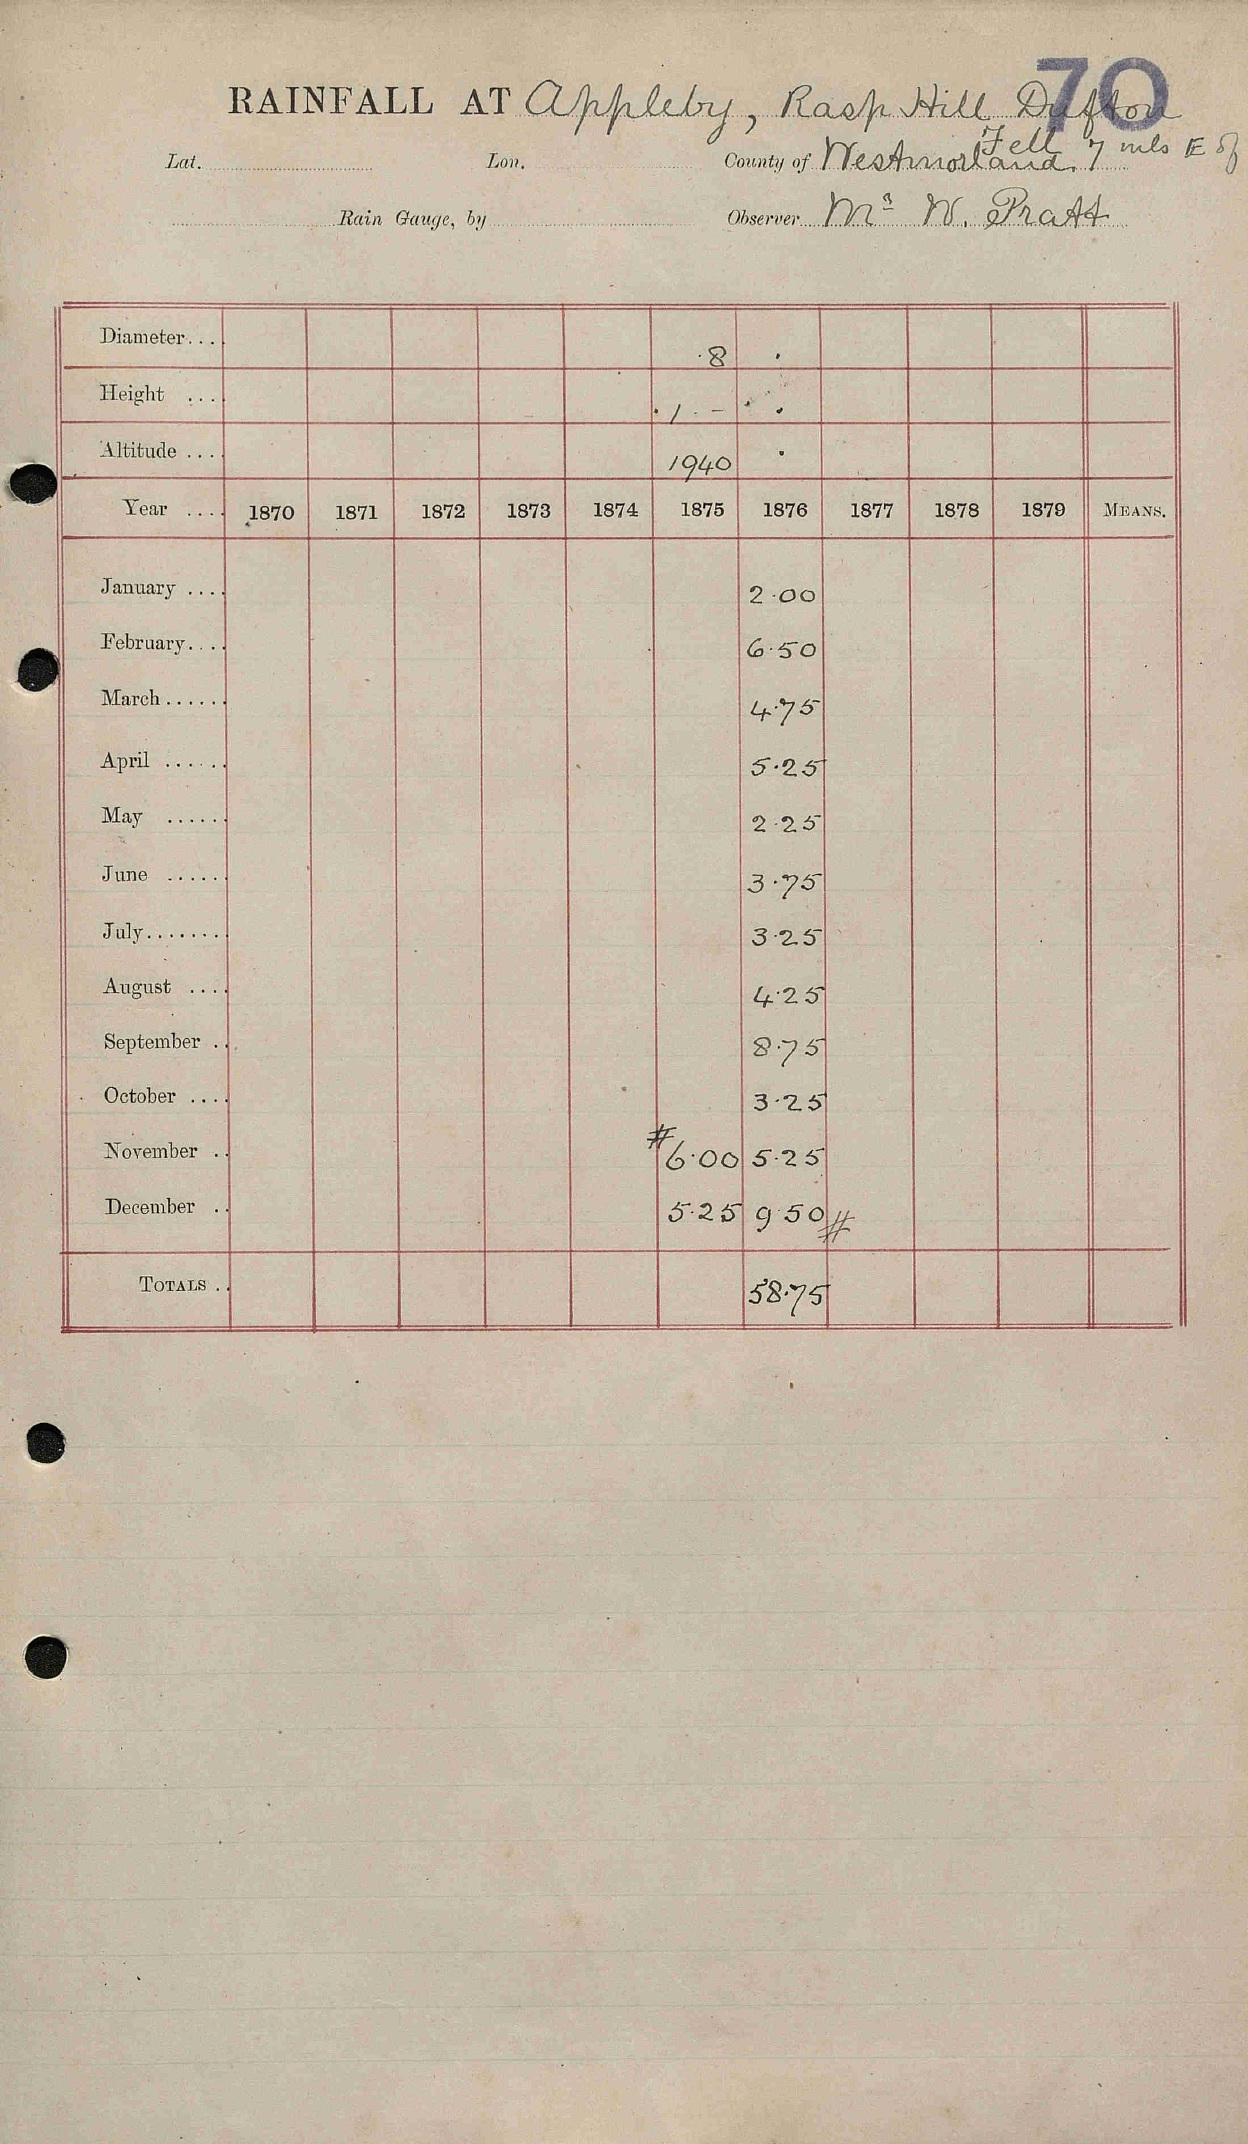 70
RAINFALL AT Appleby, Rasp Hill Dufton
Fell
Lat. Lon. County of Westmorland. 7 mls E of
Rain Gauge, by Observer Mr W. Pratt
Diameter... 8 .
Height ... 1 - .
Altitude .... 1940 .
Year .... 1870 1871 1872 1873 1874 1875 1876 1877 1878 1879 MEANS.
January .... 2.00
February.... 6.50
March...... 4.75
April ...... 5.25
May ...... 2.25
June ...... 3.75
July....... 3.25
August .... 4.25
September .. 8.75
October .... 3.25
November .. #6.00 5.25
December .. 5.25 9.50#
TOTALS .. 58.75